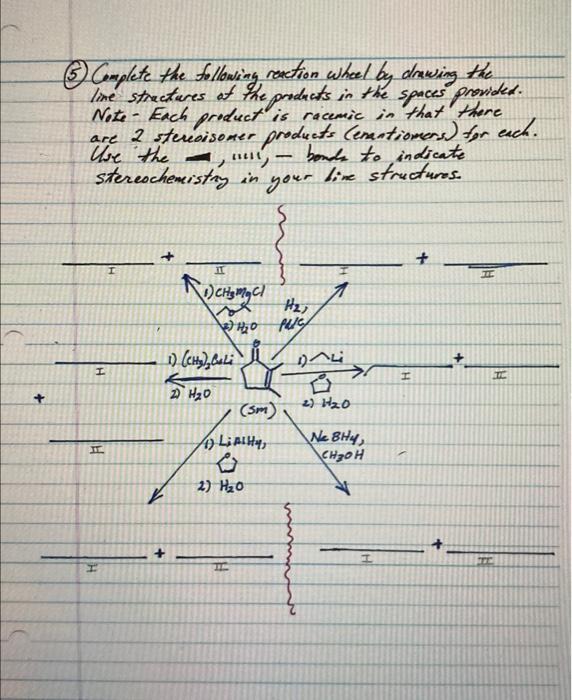 ⑤ Complete the following reaction wheel by drawing the
line structures of the products in the spaces provided.
Note - Each product is racemic in that there
are 2 stereoisomer products (enantiomers) for each.
Use the , , — bonds to indicate
stereochemistry in your line structures.
+ +
I II I II
1) CH3MgCl
O
2) H2O
H2,
Pd/C
O
1) (CH3)2CuLi
2) H2O
1) Li
O
2) H2O
I
+
II
+
I II
(SM)
1) LiAlH4,
O
2) H2O
NaBH4,
CH3OH
+ +
I II I II